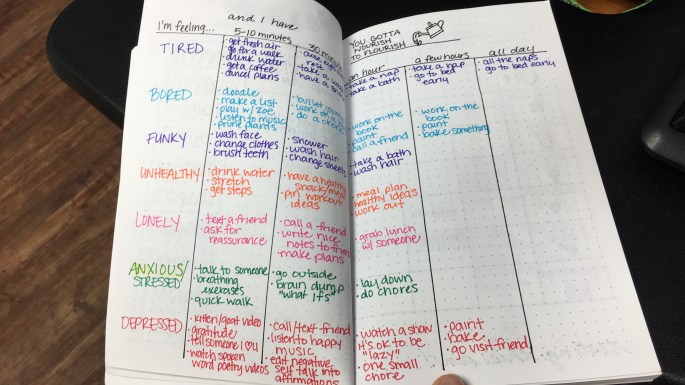 I'm feeling...
and I have
5-10 minutes
30 min
YOU GOTTA
NOURISH
TO FLOURISH
an hour
a few hours
all day
TIRED
• get fresh air
• go for a walk
• drink water
• get a coffee
• cancel plans
rest
• take a
• have a
• take a nap
• take a bath
• take a nap
• go to bed
early
• all the naps
• go to bed early
BORED
• doodle
• make a list
• play w/ zoe
• listen to music
• prune plants
• bullet
• work on a
• do a chore
• work on the
book
• paint
• call a friend
• work on the
book
• paint
• bake something
FUNKY
• wash face
• change clothes
• brush teeth
• shower
• wash hair
• change sheets
• take a bath
• wash hair
UNHEALTHY
• drink water
• stretch
• get steps
• have a healthy
snack/meal
• pin workout
ideas
• meal plan
healthy ideas
• work out
LONELY
• text a friend
• ask for
reassurance
• call a friend
• write nice
notes to friend
• make plans
• grab lunch
w/ someone
ANXIOUS/
STRESSED
• talk to someone
• breathing
exercises
• quick walk
• go outside
• brain dump
"what ifs"
• lay down
• do chores
DEPRESSED
• kitten/goat video
• gratitude
• tell someone I ♡ u
• watch spoken
word poetry videos
• call/text friend
• listen to happy
music
• edit negative
self talk into
affirmations
• watch a show
it's ok to be
"lazy"
• one small
chore
• paint
• bake
• go visit friend